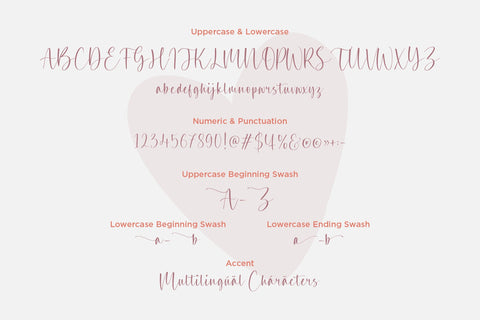 Uppercase & Lowercase
ABCDEFGHIJKLMNOPQRSTUVWXYZ
abcdefghijklmnopqrstuvwxyz
Numeric & Punctuation
1234567890!@#$%&©®»+:-
Uppercase Beginning Swash
A-Z
Lowercase Beginning Swash
Lowercase Ending Swash
a-b
a-b
Accent
Multilingual Characters